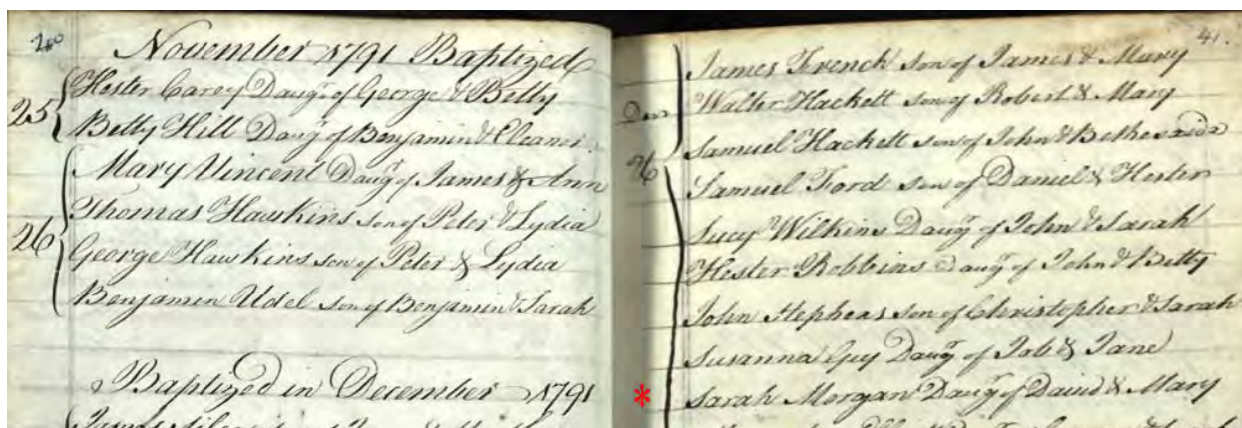 240
November 1791 Baptized
25 Hester Carey Daugr. of George & Betty
Betty Hill Daugr. of Benjamin & Eleanor
Mary Vincent Daugr. of James & Ann
Thomas Hawkins son of Peter & Lydia
26 George Hawkins son of Peter & Lydia
Benjamin Udel son of Benjamin & Sarah
Baptized in December 1791
41.
James French son of James & Mary
Walter Hackett son of Robert & Mary
Samuel Hackett son of John &
26 Samuel Ford son of Daniel & Hester
Lucy Wilkins Daugr. of John & Sarah
Hester Robbins Daugr. of John & Betty
John Stephens son of Christopher & Sarah
Susanna Guy Daugr. of Job & Jane
* Sarah Morgan Daugr. of David & Mary